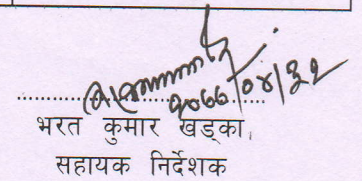 २०७७/०४/३२
भरत कुमार खड्का,
सहायक निर्देशक